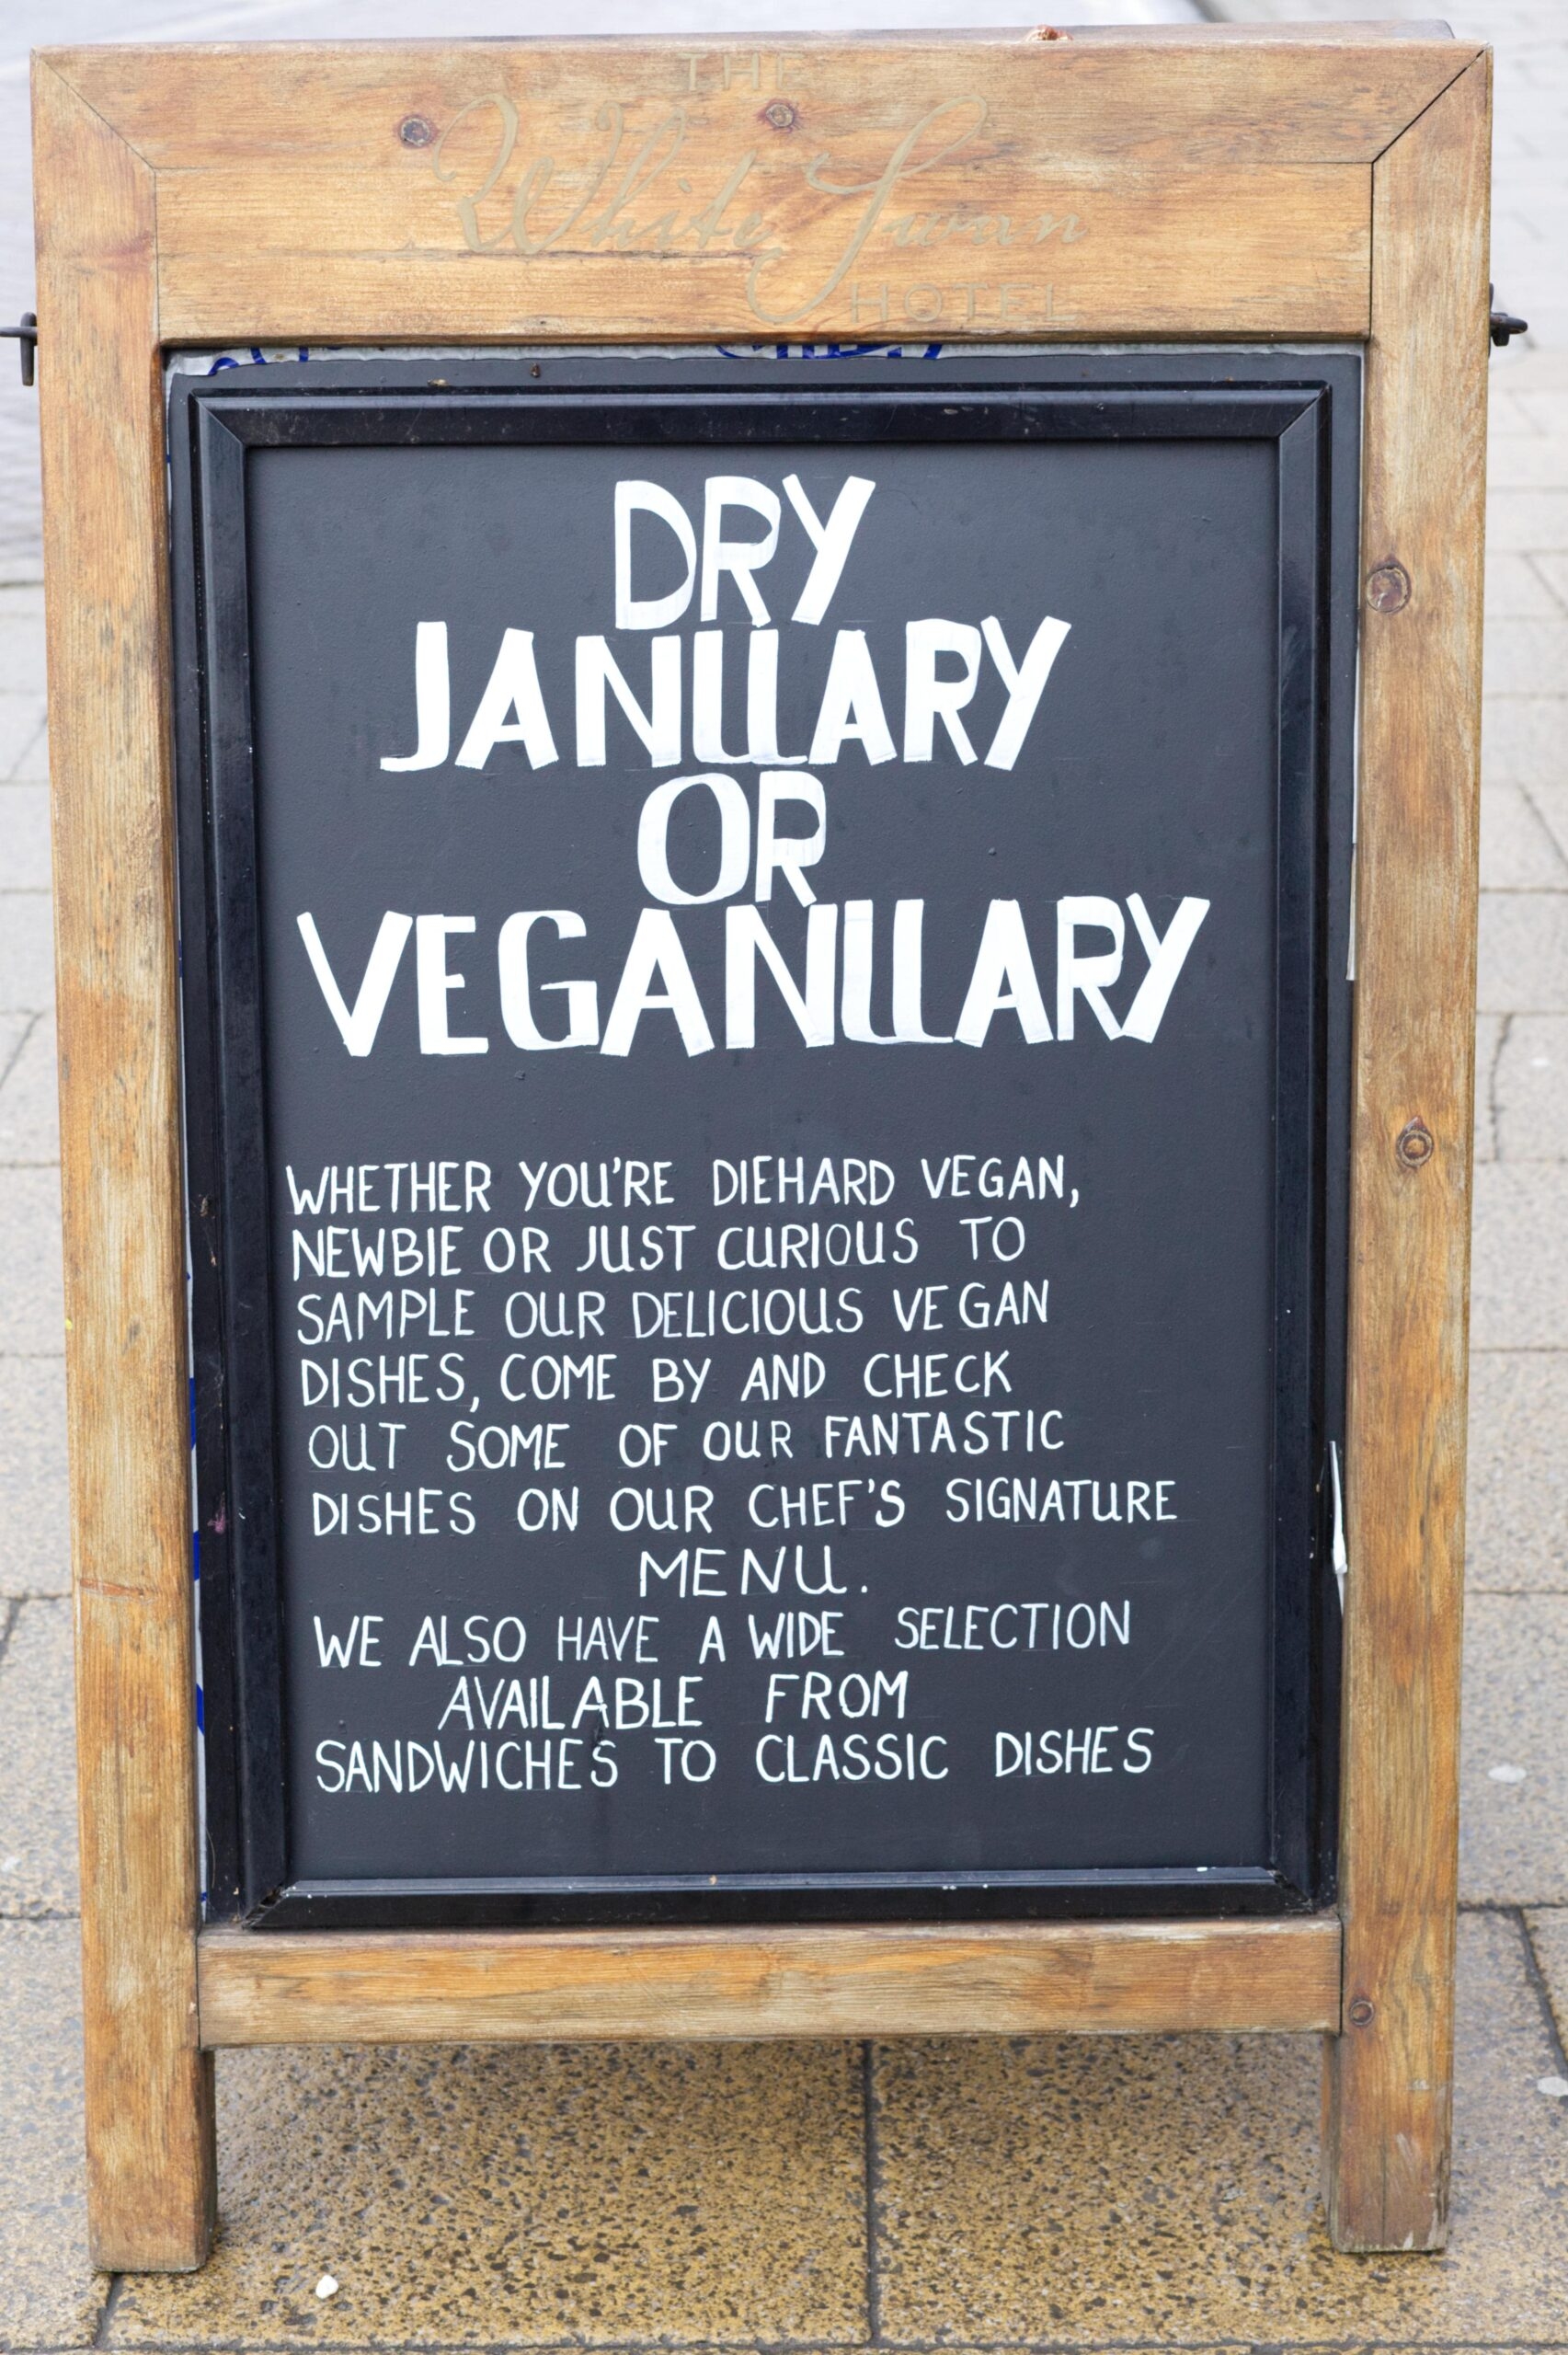 THE
White Swan
HOTEL
DRY
JANUARY
OR
VEGANUARY
WHETHER YOU'RE DIEHARD VEGAN,
NEWBIE OR JUST CURIOUS TO
SAMPLE OUR DELICIOUS VEGAN
DISHES, COME BY AND CHECK
OUT SOME OF OUR FANTASTIC
DISHES ON OUR CHEF'S SIGNATURE
MENU.
WE ALSO HAVE A WIDE SELECTION
AVAILABLE FROM
SANDWICHES TO CLASSIC DISHES